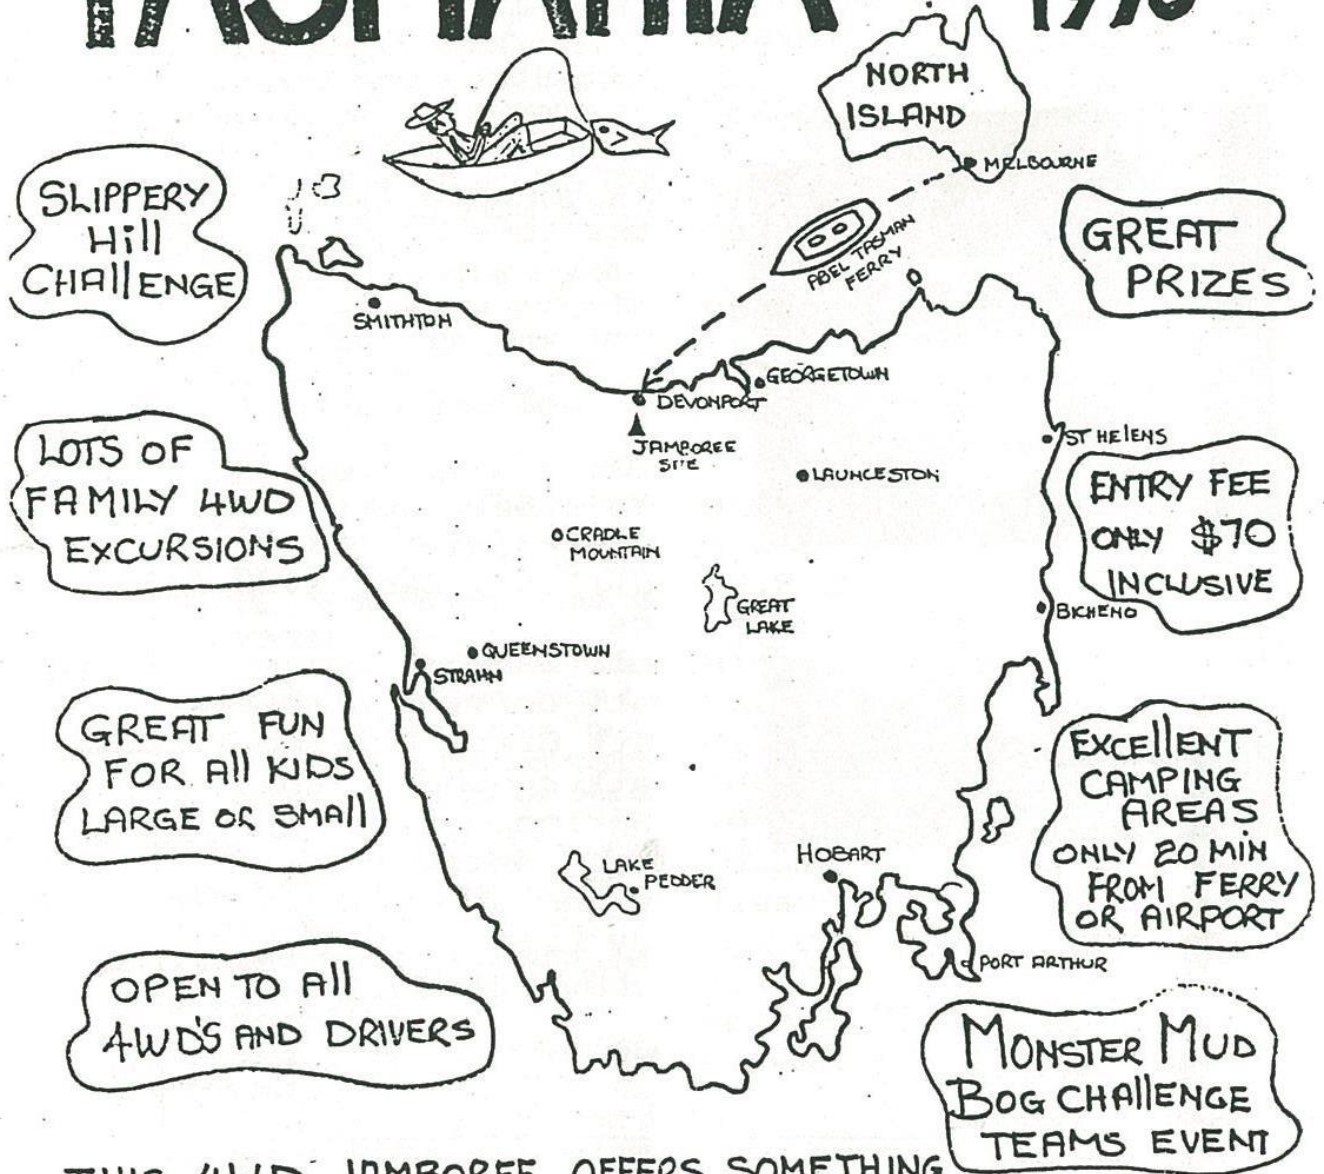 TASMANIA 1990
NORTH
ISLAND
MELBOURNE
ABEL TASMAN
FERRY
SLIPPERY
Hill
CHAllENGE
GREAT
PRIZES
SMITHTON
GEORGETOWN
DEVONPORT
JAMBOREE
SITE
ST HElENS
LAUNCESTON
LOTS OF
FAMILY 4WD
EXCURSIONS
ENTRY FEE
ONLY $70
INCLUSIVE
CRADLE
MOUNTAIN
GREAT
LAKE
BICHENO
QUEENSTOWN
STRAHN
GREAT FUN
FOR All KIDS
LARGE OR SMAll
EXCEllENT
CAMPING
AREAS
ONLY 20 MiN
FROM FERRY
OR AIRPORT
HOBART
LAKE
PEDDER
PORT ARTHUR
OPEN TO All
4WD'S AND DRIVERS
MONSTER MUD
BOG CHAllENGE
TEAMS EVENT
THIS 4WD JAMBOREE OFFERS SOMETHING